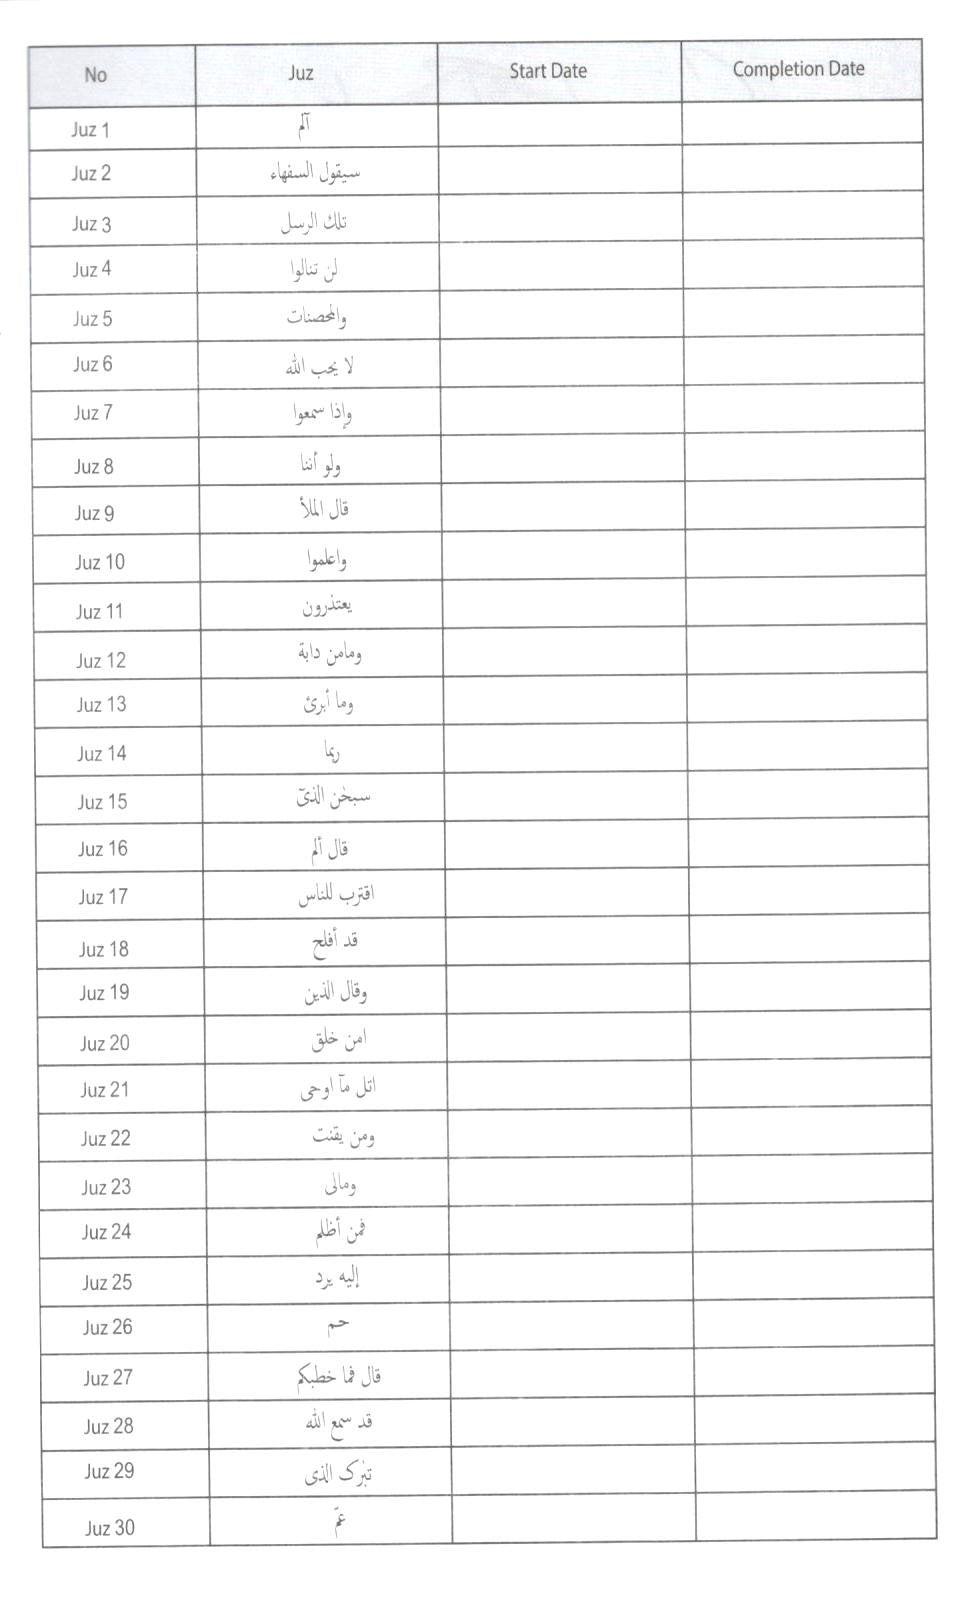 No Juz Start Date Completion Date
Juz 1 آلم
Juz 2 سيقول السفهاء
Juz 3 تلك الرسل
Juz 4 لن تنالوا
Juz 5 والمحصنات
Juz 6 لا يحب الله
Juz 7 وإذا سمعوا
Juz 8 ولو أننا
Juz 9 قال الملأ
Juz 10 واعلموا
Juz 11 يعتذرون
Juz 12 ومامن دابة
Juz 13 وما أبرئ
Juz 14 ربما
Juz 15 سبحٰن الذىٓ
Juz 16 قال ألم
Juz 17 اقترب للناس
Juz 18 قد أفلح
Juz 19 وقال الذين
Juz 20 امن خلق
Juz 21 اتل مآ اوحى
Juz 22 ومن يقنت
Juz 23 ومالى
Juz 24 فمن أظلم
Juz 25 إليه يرد
Juz 26 حم
Juz 27 قال فما خطبكم
Juz 28 قد سمع الله
Juz 29 تبٰرک الذى
Juz 30 عمّ